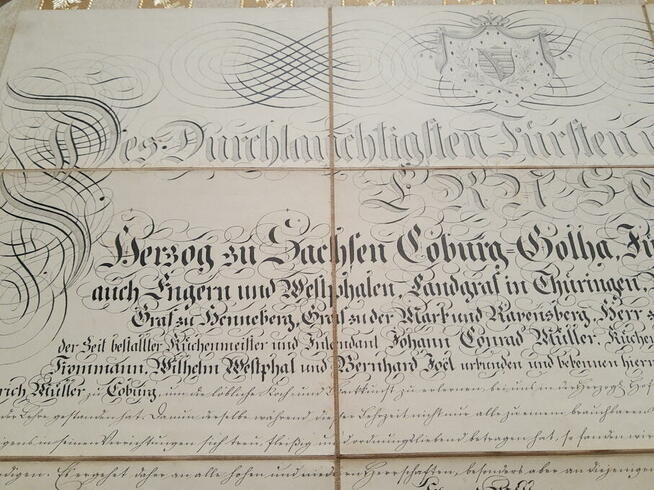 Des Durchlauchtigsten Fürsten
ERNST
Herzog zu Sachsen Coburg-Gotha,
auch Engern und Westphalen, Landgraf in Thüringen,
Graf zu Henneberg, Graf zu der Mark und Ravensberg, Herr
der Zeit bestallter Küchenmeister und Intendant Johann Conrad Müller, Küchen
Trommann, Wilhelm Westphal und Bernhard Joël urkunden und bekennen hier
rich Müller zu Coburg, um die löbliche Koch- und Backkunst zu erlernen, bei uns in der Herzogl. Hof
der Lehre gestanden hat. Da nun derselbe während dieser Lehrzeit nicht nur alle zu einem brauchbaren
igens in seinen Verrichtungen sich treu, fleißig und ordnungsliebend betragen hat, so fanden wir
digen. Es ergehet daher an alle hohen und niedern Herrschaften, besonders aber an diejenigen